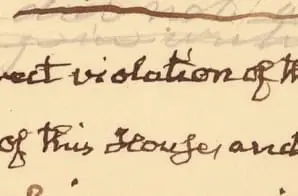 rect violation of th
of this House, and